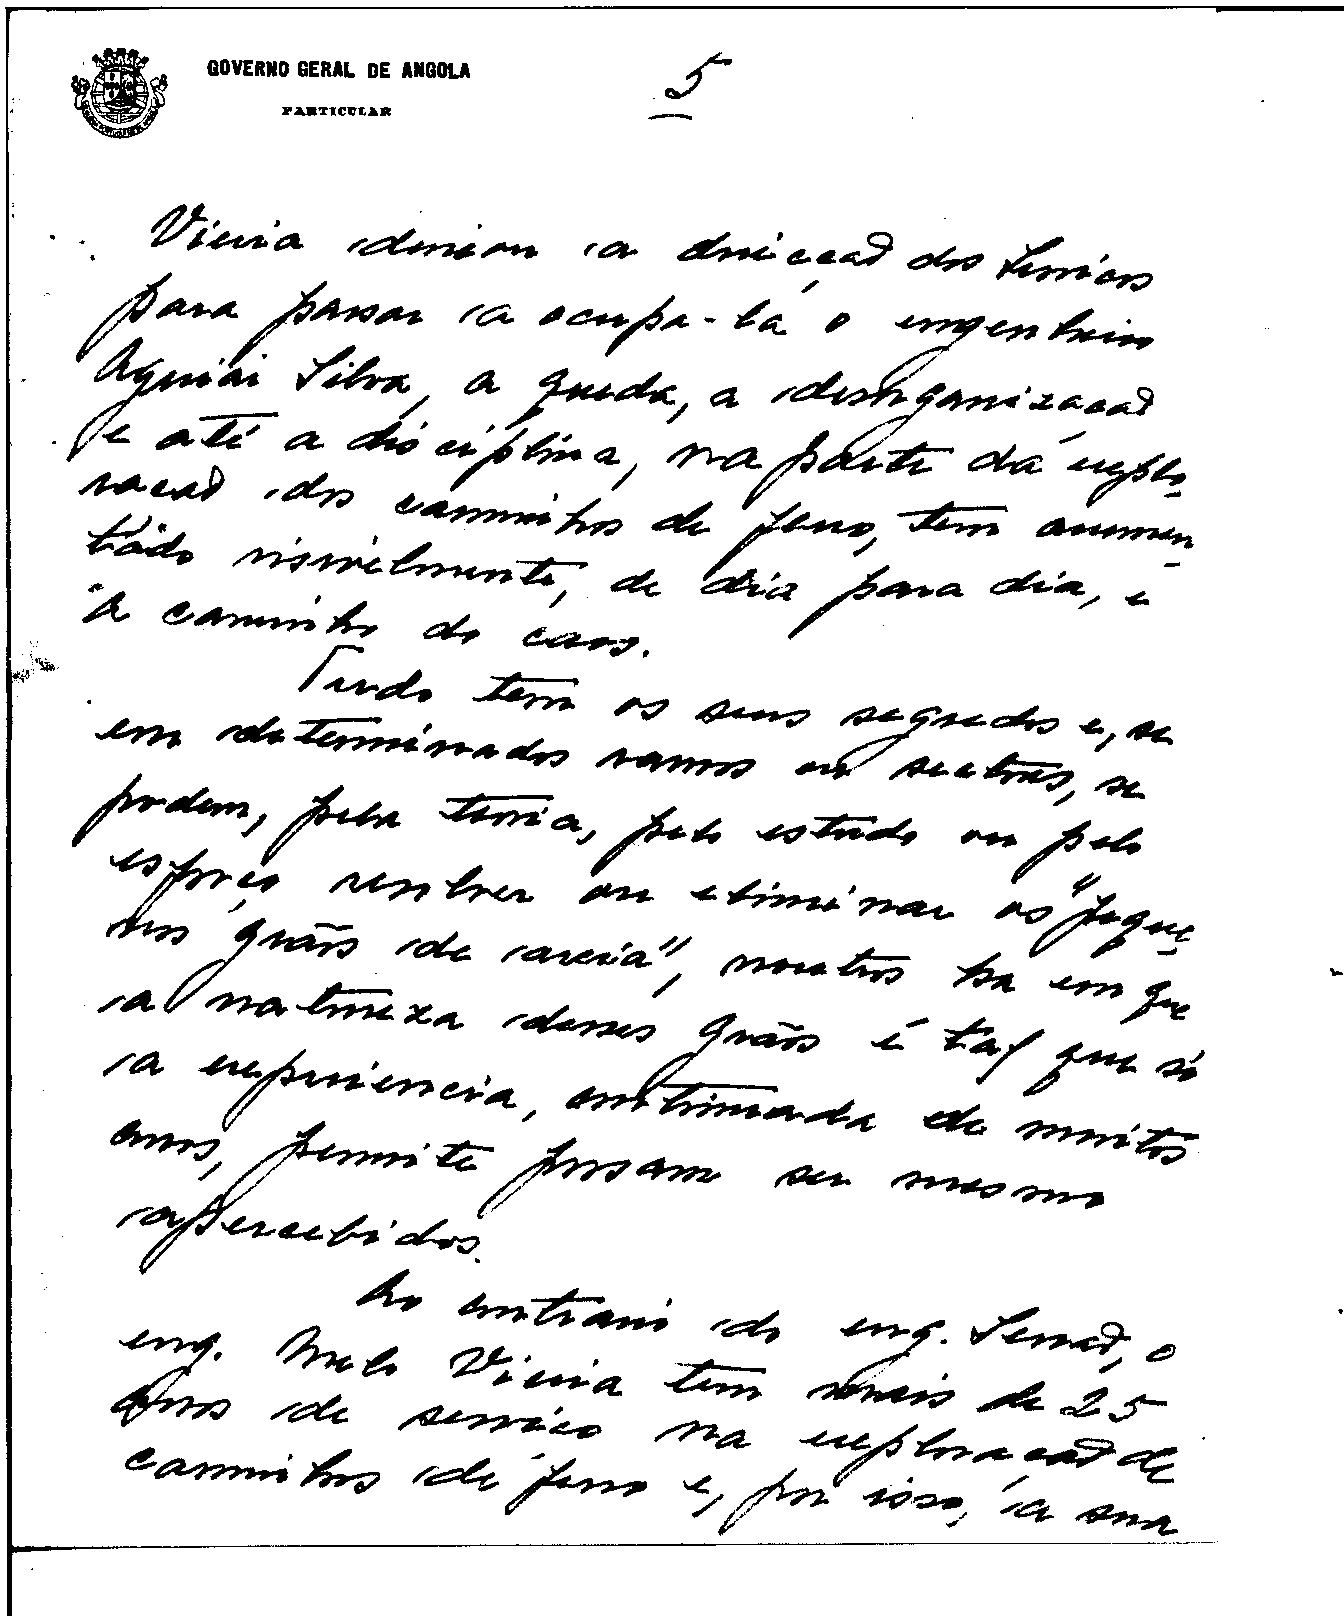 GOVERNO GERAL DE ANGOLA
PARTICULAR
5
Vieira deixou a direcção dos Serviços
para passar a ocupa-la o engenheiro
Aguiar Silva, a queda, a desorganização
e até a disciplina, na parte da explo-
ração dos caminhos de ferro, tem aumen-
tado visivelmente, de dia para dia, e
a caminho do caos.
Tudo tem os seus segredos e, se
em determinados ramos ou sectores, se
podem, pela teoria, pelo estudo ou pelo
esforço resolver ou eliminar os "peque-
nos grãos de areia", noutros ha em que
a natureza desses grãos é tal que só
a experiencia, continuada de muitos
anos, permite possam ser mesmo
apercebidos.
Ao contrario do eng. Serrão, o
eng. Melo Vieira tem mais de 25
anos de serviço na exploração de
caminhos de ferro e, por isso, a sua